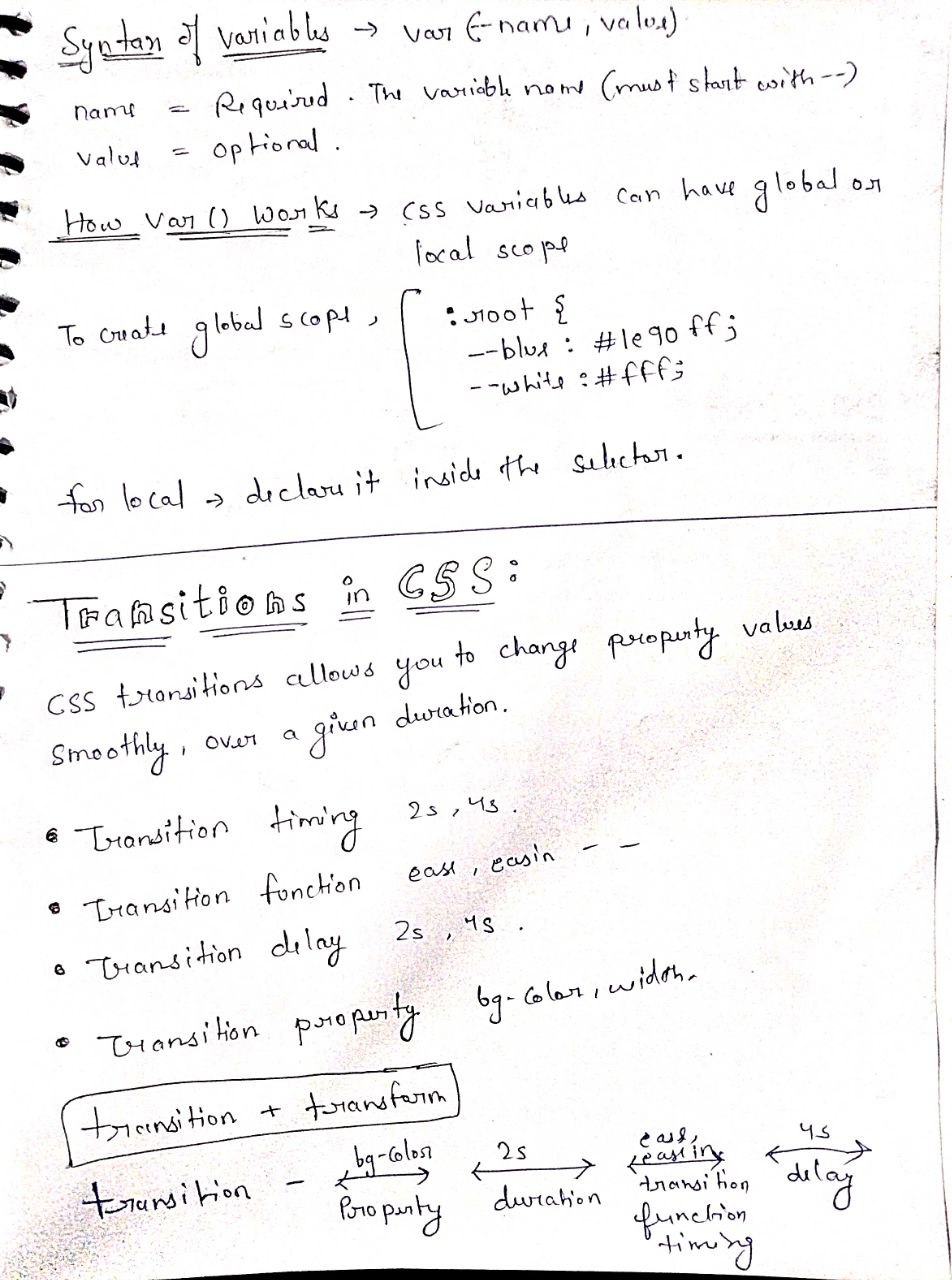 Syntax of variables → var (--name, value)
name = Required. The variable name (must start with --)
value = optional.
How var () works → CSS variables can have global or
local scope
To create global scope,
:root {
--blue : #1e90ff;
--white : #fff;
for local → declare it inside the selector.
Transitions in CSS:
CSS transitions allows you to change property values
smoothly, over a given duration.
• Transition timing 2s, 4s.
• Transition function ease, easin - -
• Transition delay 2s, 4s.
• Transition property bg-color, width.
transition + transform
transition - bg-color 2s ease, easein 4s
Property duration transition delay
function
timing